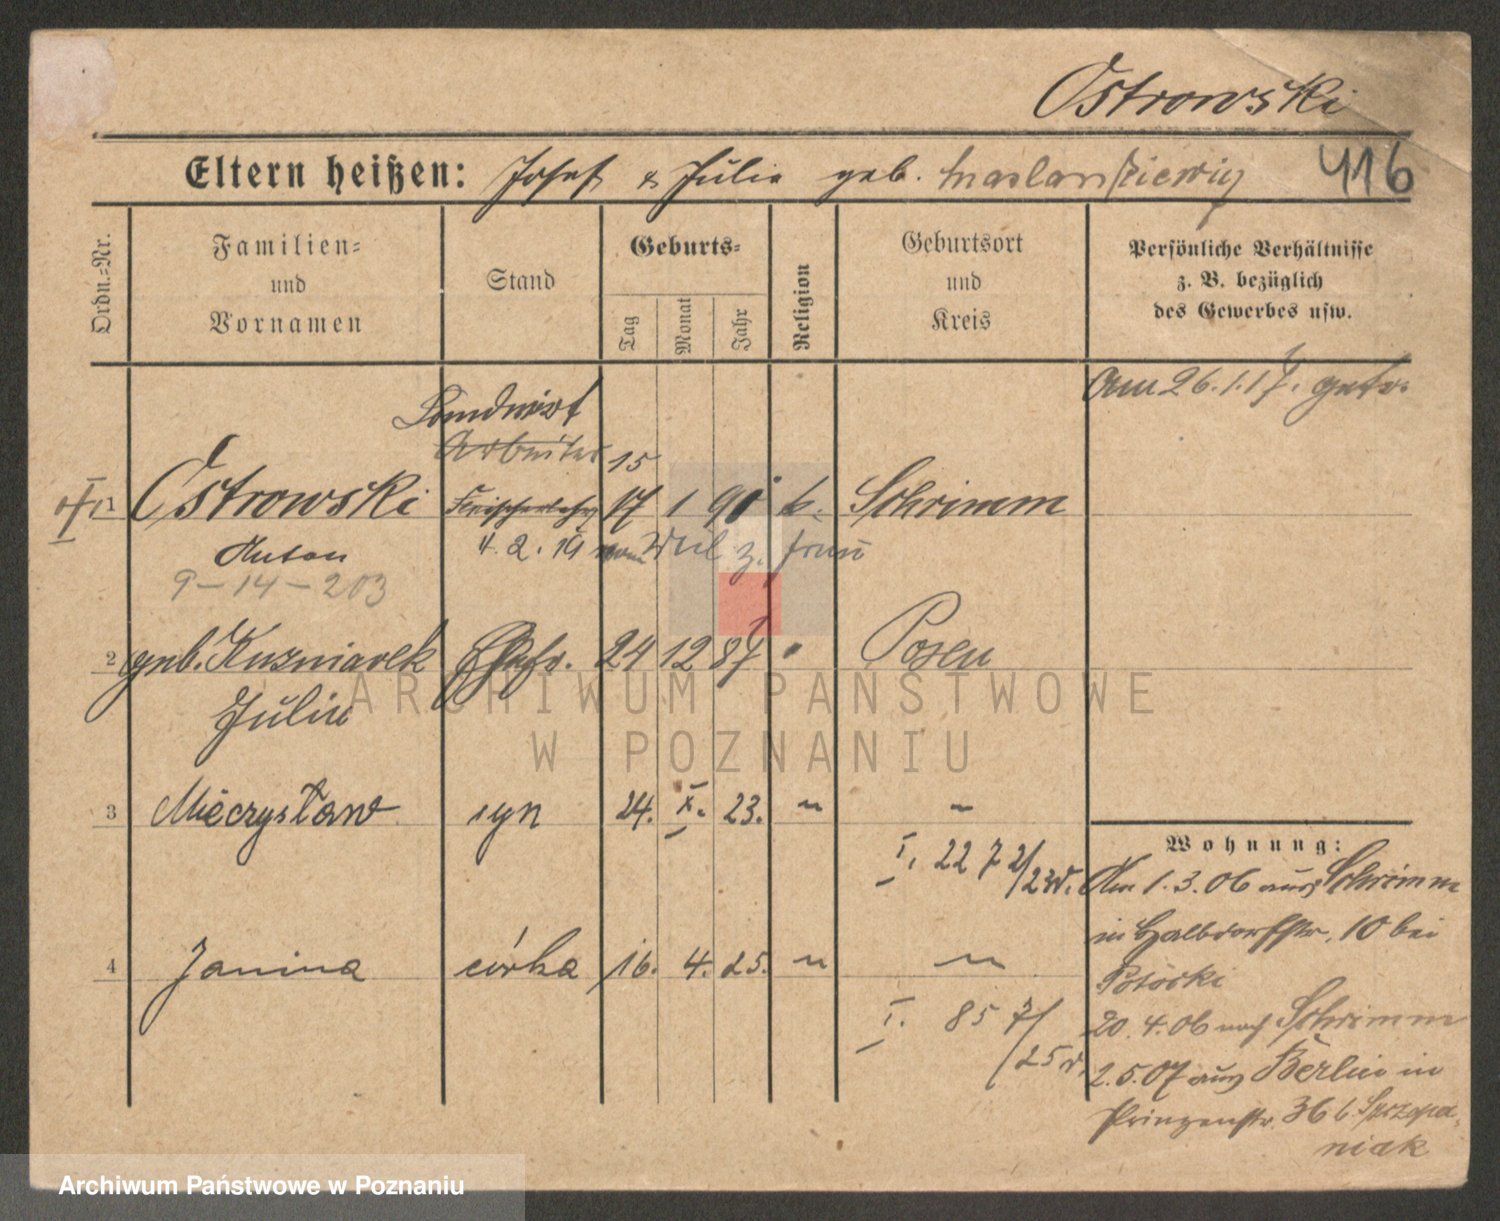 Ostrowski
Eltern heißen: Josef & Julie geb. Maslankiewicz 416
Ordn.=Nr.
Familien=
und
Vornamen
Stand
Geburts=
Tag
Monat
Jahr
Religion
Geburtsort
und
Kreis
Persönliche Verhältnisse
z. B. bezüglich
des Gewerbes usw.
Am 26.1.17. getr.
Landwirt
Arbeiter 15
1 Ostrowski Fleischerlehrg 17 1 90 k. Schrimm
Anton 4.2.19 z. Frau
9-14-203
2 geb. Kuzniarek Ehefr. 24 12 87 " Posen
Julie
3 Mieczysław syn 24. X. 23. " "
I. 22 72/23 d.
4 Janina córka 16. 4. 25. " "
I. 85 7/25 d.
Wohnung:
Am 1.3.06 aus Schrimm
in Halbdorfstr. 10 bei
Potocki
20.4.06 nach Schrimm
2.5.07 aus Berlin in
Prinzenstr. 36 b. Szczepa-
niak
ARCHIWUM PAŃSTWOWE
W POZNANIU
Archiwum Państwowe w Poznaniu